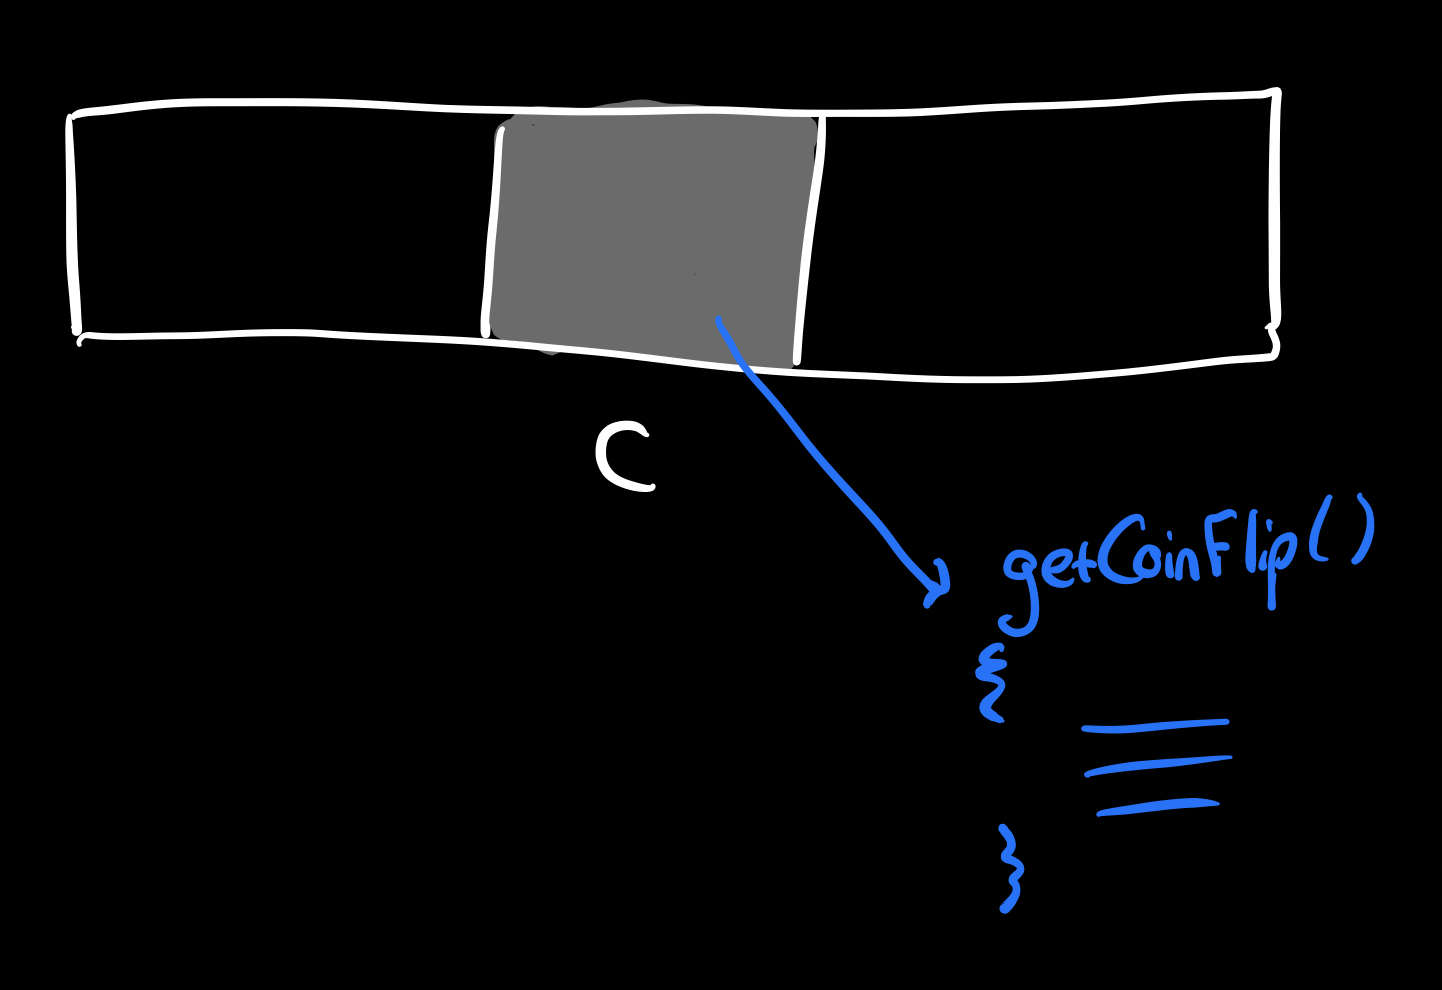 C
getCoinFlip()
{
}